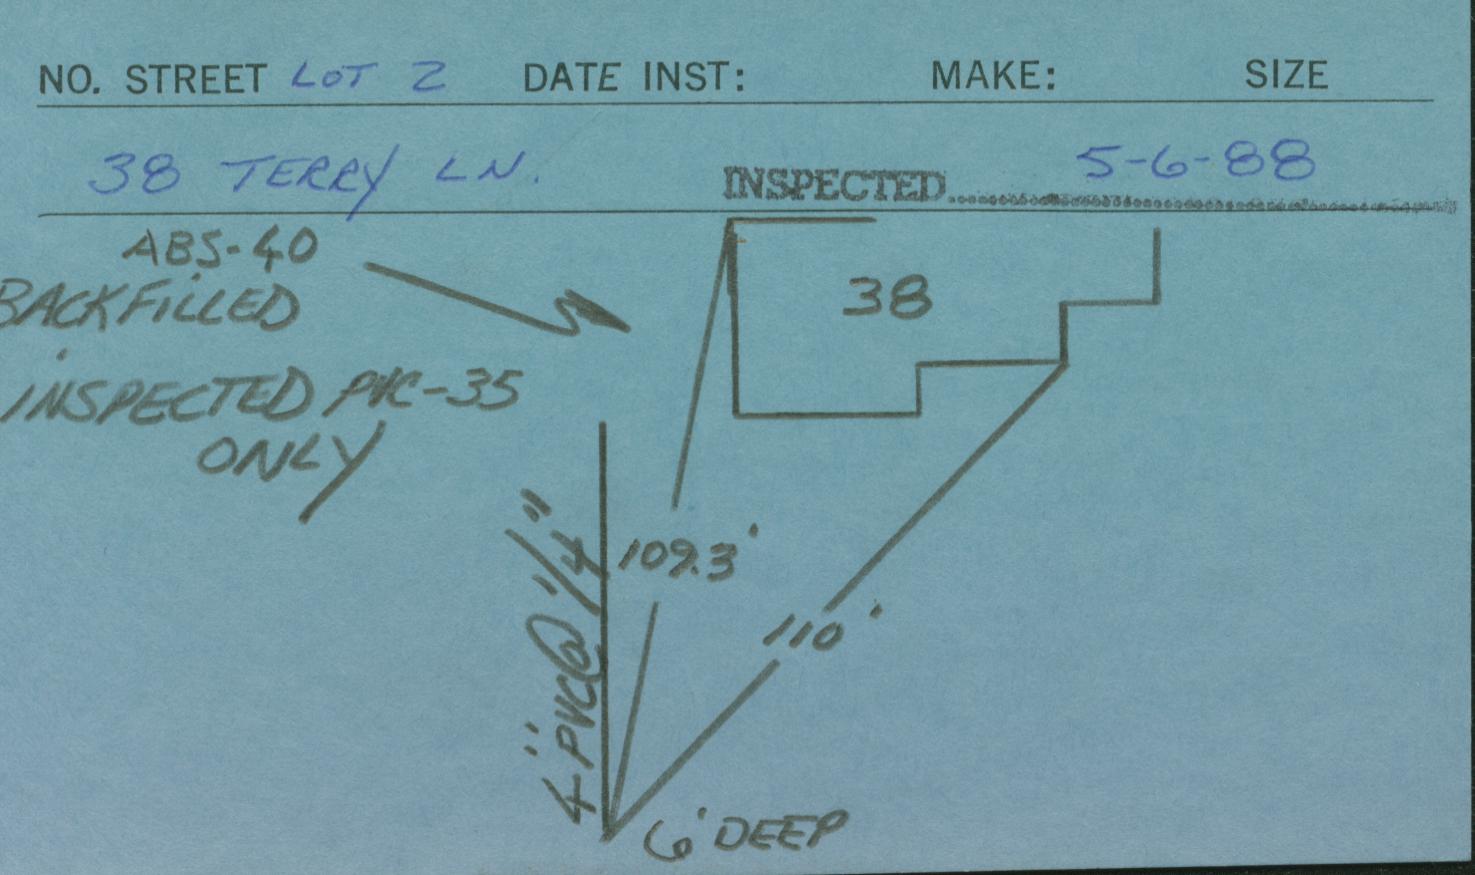 NO. STREET LOT 2 DATE INST: MAKE: SIZE
38 TERRY LN. INSPECTED 5-6-88
ABS-40
BACKFILLED
INSPECTED PVC-35
ONLY
38
109.3'
110'
4" PVC @ 1/4"
6' DEEP